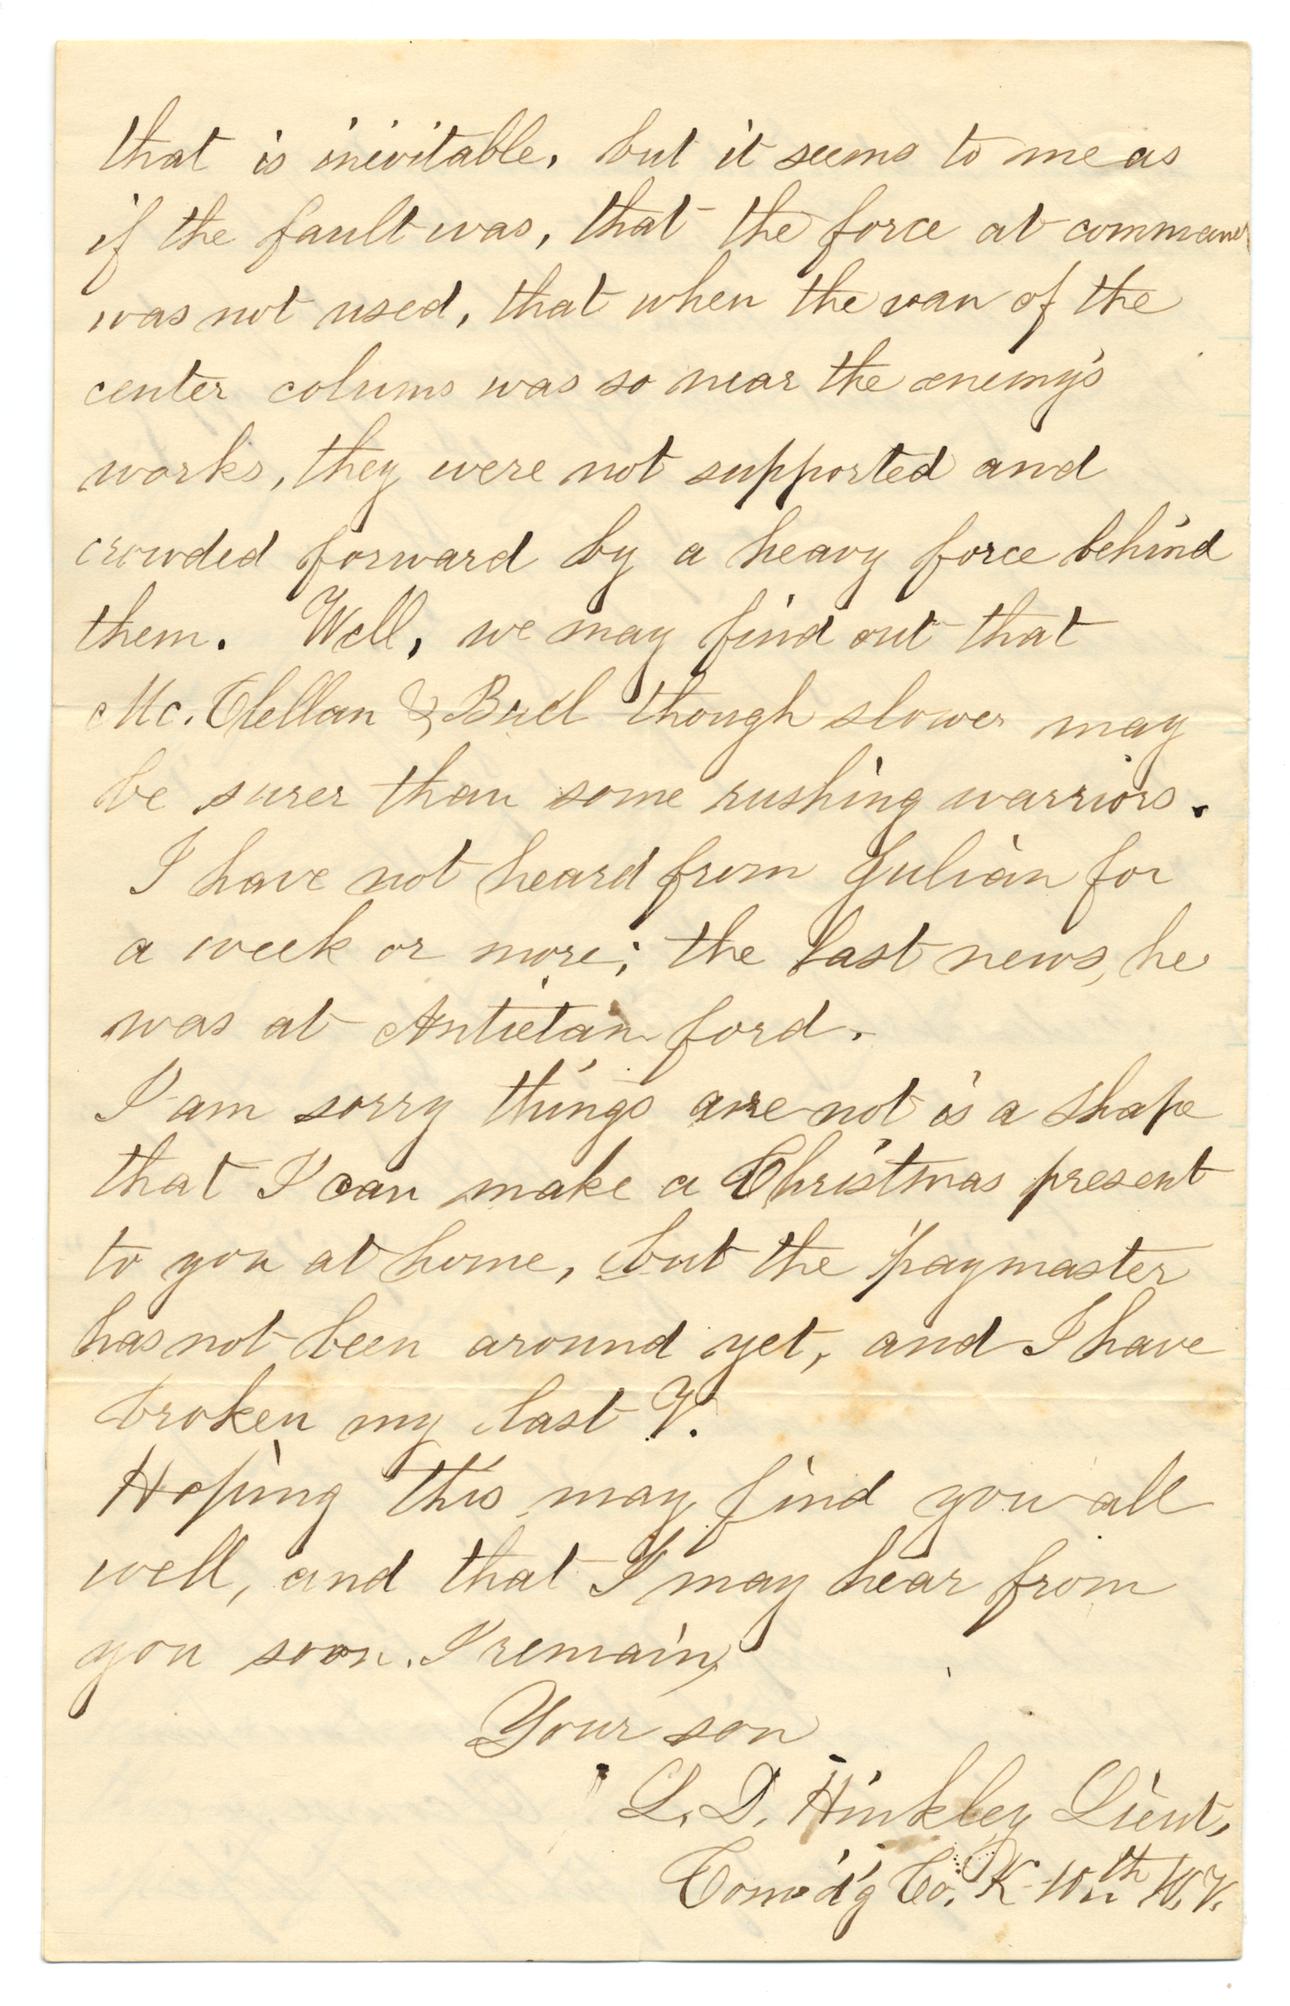 that is inevitable, but it seems to me as
if the fault was, that the force at command
was not used, that when the van of the
center colums was so near the enemy's
works, they were not supported and
crowded forward by a heavy force behind
them. Well, we may find out that
Mc.Clellan & Buel though slower may
be surer than some rushing warriors.
I have not heard from Julian for
a week or more; the last news, he
was at Antietam ford.
I am sorry things are not is a shape
that I can make a Christmas present
to you at home, but the paymaster
has not been around yet, and I have
broken my last V.
Hoping this may find you all
well, and that I may hear from
you soon. I remain,
Your son
L. D. Hinkley Lieut,
Comd'g Co. K 10th W.V.